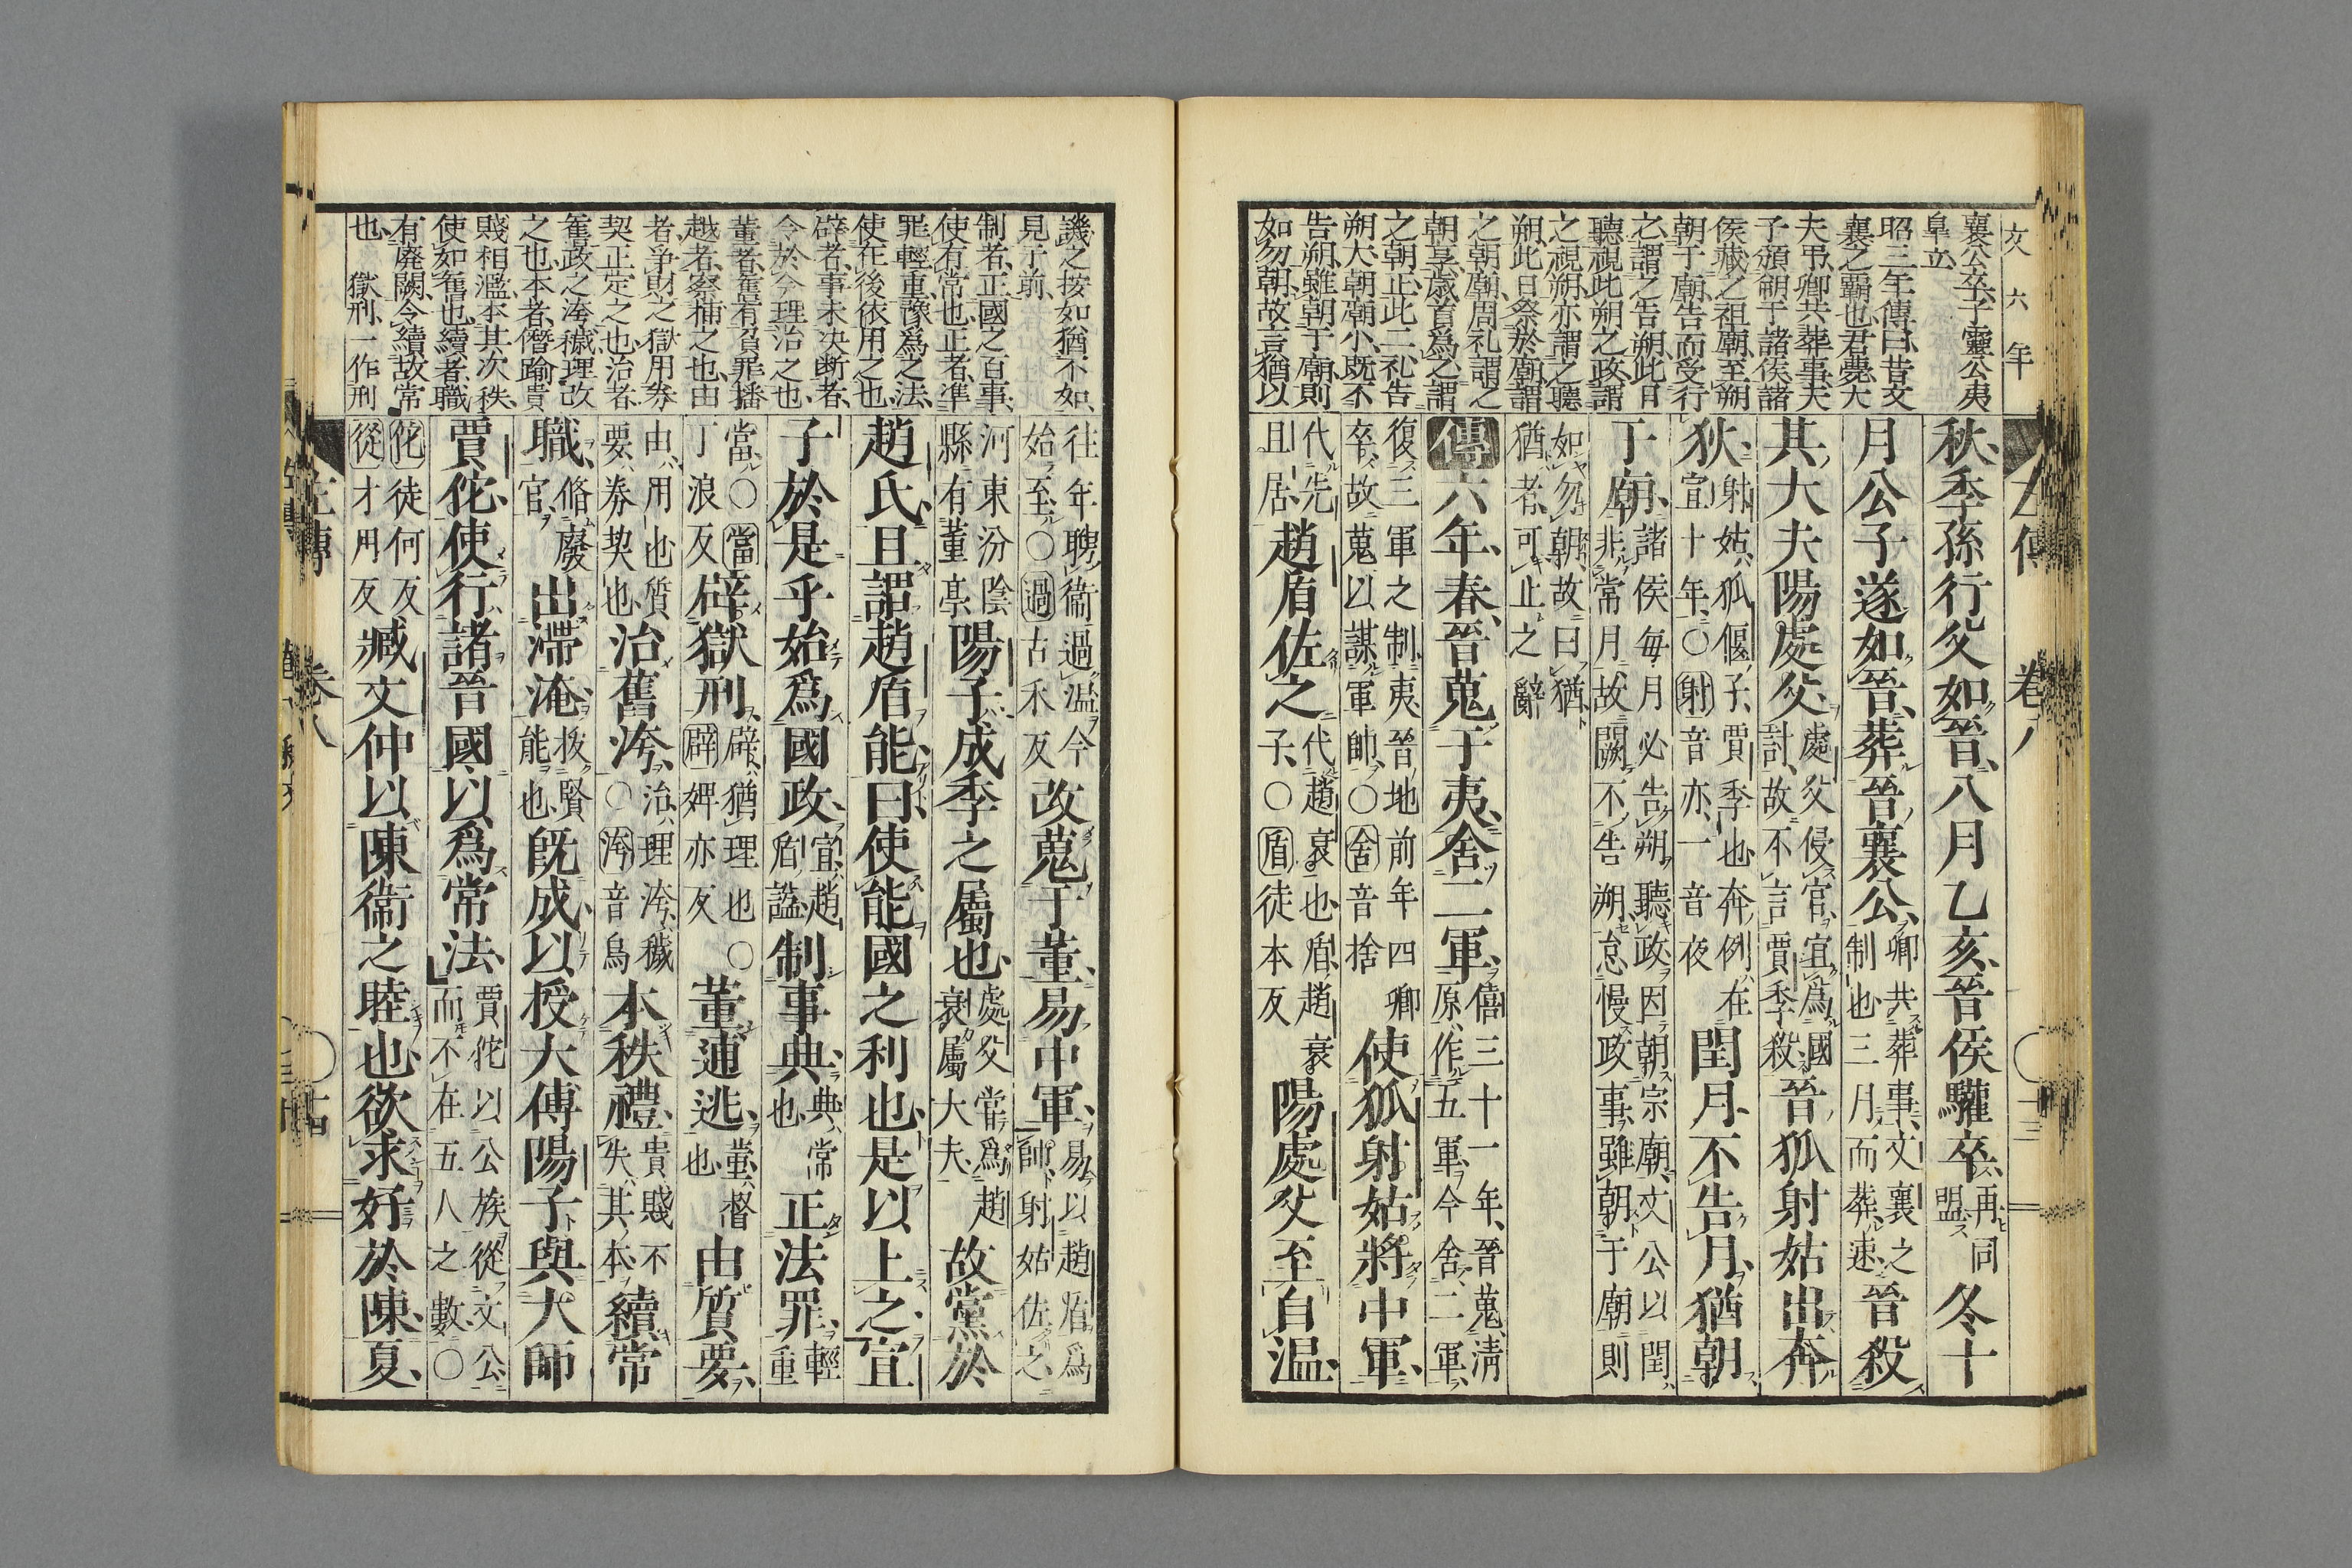 文六年
襄公卒子靈公夷
皐立
昭三年傳曰昔文
襄之霸也君薨大
夫弔卿共葬事夫
子頒朔于諸侯諸
侯藏之祖廟至朔
朝于廟告而受行
之謂之告朔此日
聽視此朔之政謂
之視朔亦謂之聽
朔此日祭於廟謂
之朝廟周礼謂之
朝享歳首爲之謂
之朝正此二礼告
朔大朝廟小既不
告朔雖朝于廟則
如勿朝故言猶以
左傳 卷八
秋季孫行父如晉八月乙亥晉侯驩卒再同盟冬十
月公子遂如晉葬晉襄公卿共葬事文襄之制也三月而葬速晉殺
其大夫陽處父處父侵官宜爲國討故不言賈季殺晉狐射姑出奔
狄射姑狐偃子賈季也奔例在宣十年〇射音亦一音夜閏月不告月猶朝
于廟諸侯每月必告朔聽政因朝宗廟文公以閏非常月故闕不告朔怠慢政事雖朝于廟則
如勿朝故曰猶猶者可止之辭
傳六年春晉蒐于夷舍二軍僖三十一年晉蒐清原作五軍今舍二軍
復三軍之制夷晉地前年四卿卒故蒐以謀軍帥〇舍音捨使狐射姑將中軍
代先且居趙盾佐之代趙衰也盾趙衰子〇盾徒本反陽處父至自温
往年聘衞過温今始至〇過古禾反改蒐于董易中軍易以趙盾爲帥射姑佐之
河東汾陰縣有董亭陽子成季之屬也處父嘗爲趙衰屬大夫故黨於
趙氏且謂趙盾能曰使能國之利也是以上之宣
子於是乎始爲國政宣趙盾謚制事典典常也正法罪輕重
當〇當丁浪反辟獄刑辟猶理也〇辟婢亦反董逋逃董督也由質要
由用也質要券契也治舊洿治理洿穢〇洿音烏本秩禮貴賤不失其本續常
職脩廢官出滯淹拔賢能也既成以授大傅陽子與大師
賈佗使行諸晉國以爲常法賈佗以公族從文公而不在五人之數〇
佗徒何反從才用反臧文仲以陳衞之睦也欲求好於陳夏
譏之按如猶不如
見于前
制者正國之百事
使有常也正者準
罪輕重豫爲之法
使在後依用之也
辟者事未决断者
令於今理治之也
董者舊有負罪播
越者察捕之也由
者爭財之獄用券
契正定之也治者
舊政之洿穢理改
之也本者僭踰貴
賤相濫本其次秩
使如舊也續者職
有廢闕令續故常
也 獄刑一作刑